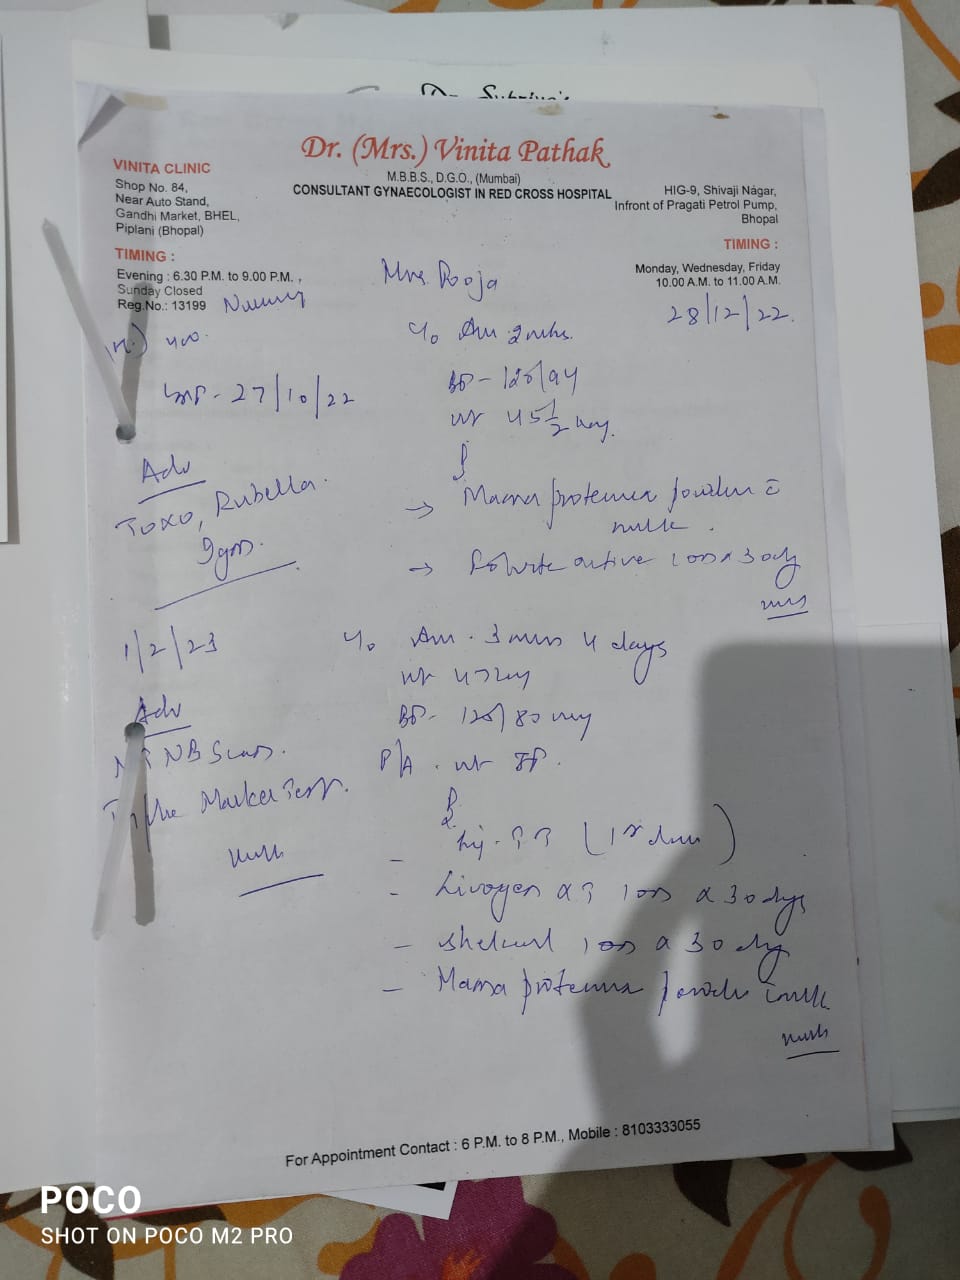 Dr. (Mrs.) Vinita Pathak
M.B.B.S., D.G.O., (Mumbai)
CONSULTANT GYNAECOLOGIST IN RED CROSS HOSPITAL
VINITA CLINIC
Shop No. 84,
Near Auto Stand,
Gandhi Market, BHEL,
Piplani (Bhopal)
TIMING :
Evening : 6.30 P.M. to 9.00 P.M. ,
Sunday Closed
Reg.No.: 13199
HIG-9, Shivaji Nagar,
Infront of Pragati Petrol Pump,
Bhopal
TIMING :
Monday, Wednesday, Friday
10.00 A.M. to 11.00 A.M.
Mrs. Pooja
28/12/22.
C/o Am 2 mhs.
LMP - 27/10/22
BP -
wt 45 1/2 kg.
Adv
Toxo, Rubella.
Igm.
→ Mama protenex powder c̄
milk.
→ Folvite active 1 OD x 30 dy
1/2/23
C/o Am. 3 mns 4 days
wt 47 kg
BP - 120/80
P/A .
Adv
NT NB Scan.
Triple Marker Test.
Inj. (1st dose)
- Livogen 1 OD x 30 dys
- Shelcal 1 OD x 30 dy
- Mama protenex powder c̄ milk
For Appointment Contact : 6 P.M. to 8 P.M., Mobile : 8103333055
POCO
SHOT ON POCO M2 PRO